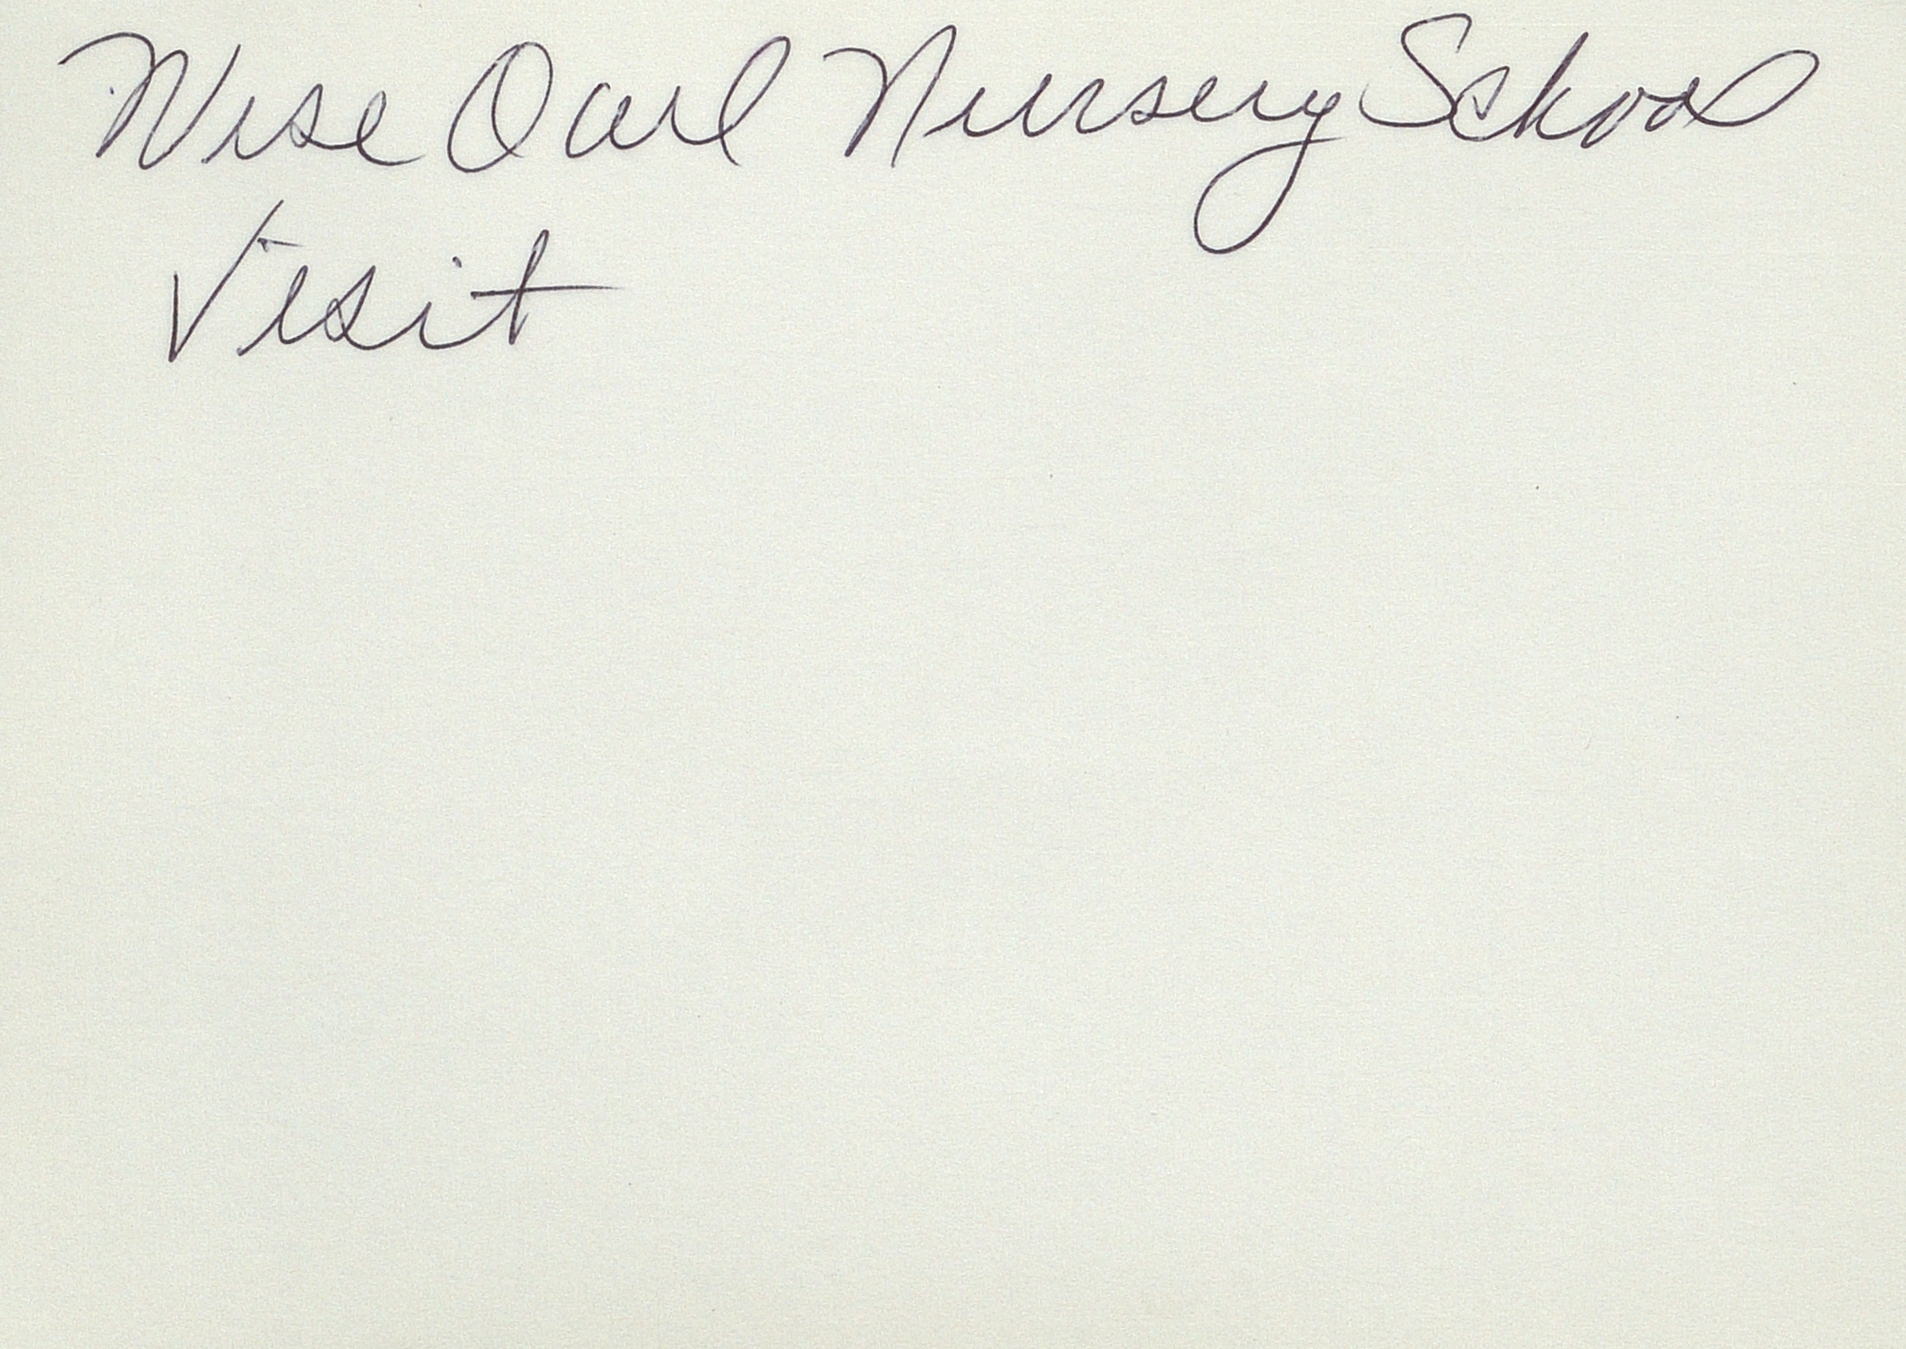 Wise Owl Nursery School
Visit